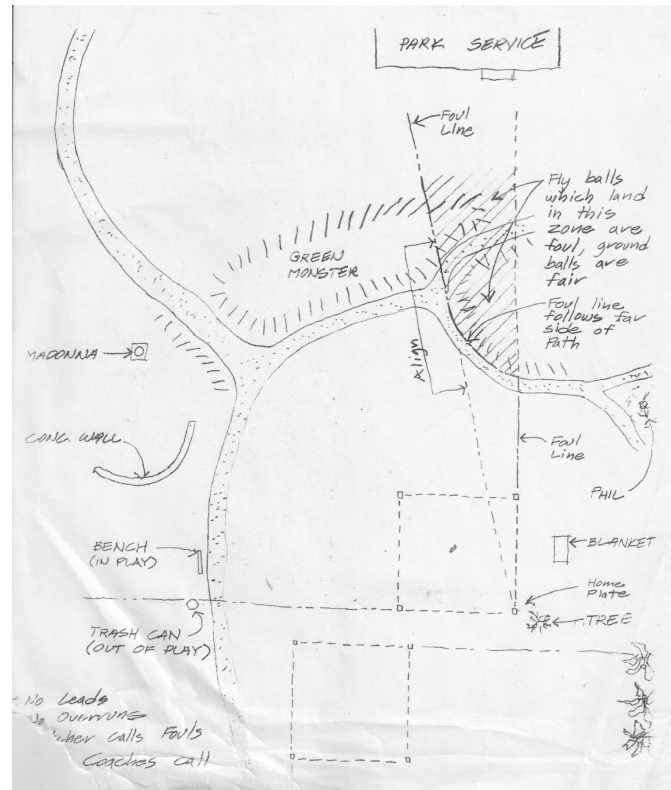 PARK SERVICE
Foul
Line
Fly balls
which land
in this
zone are
foul, ground
balls are
fair
GREEN
MONSTER
Foul line
follows far
side of
Path
Align
MADONNA
CONC. WALL
Foul
Line
PHIL
BENCH
(IN PLAY)
BLANKET
Home
Plate
TREE
TRASH CAN
(OUT OF PLAY)
No Leads
No Overruns
calls Fouls
Coaches call